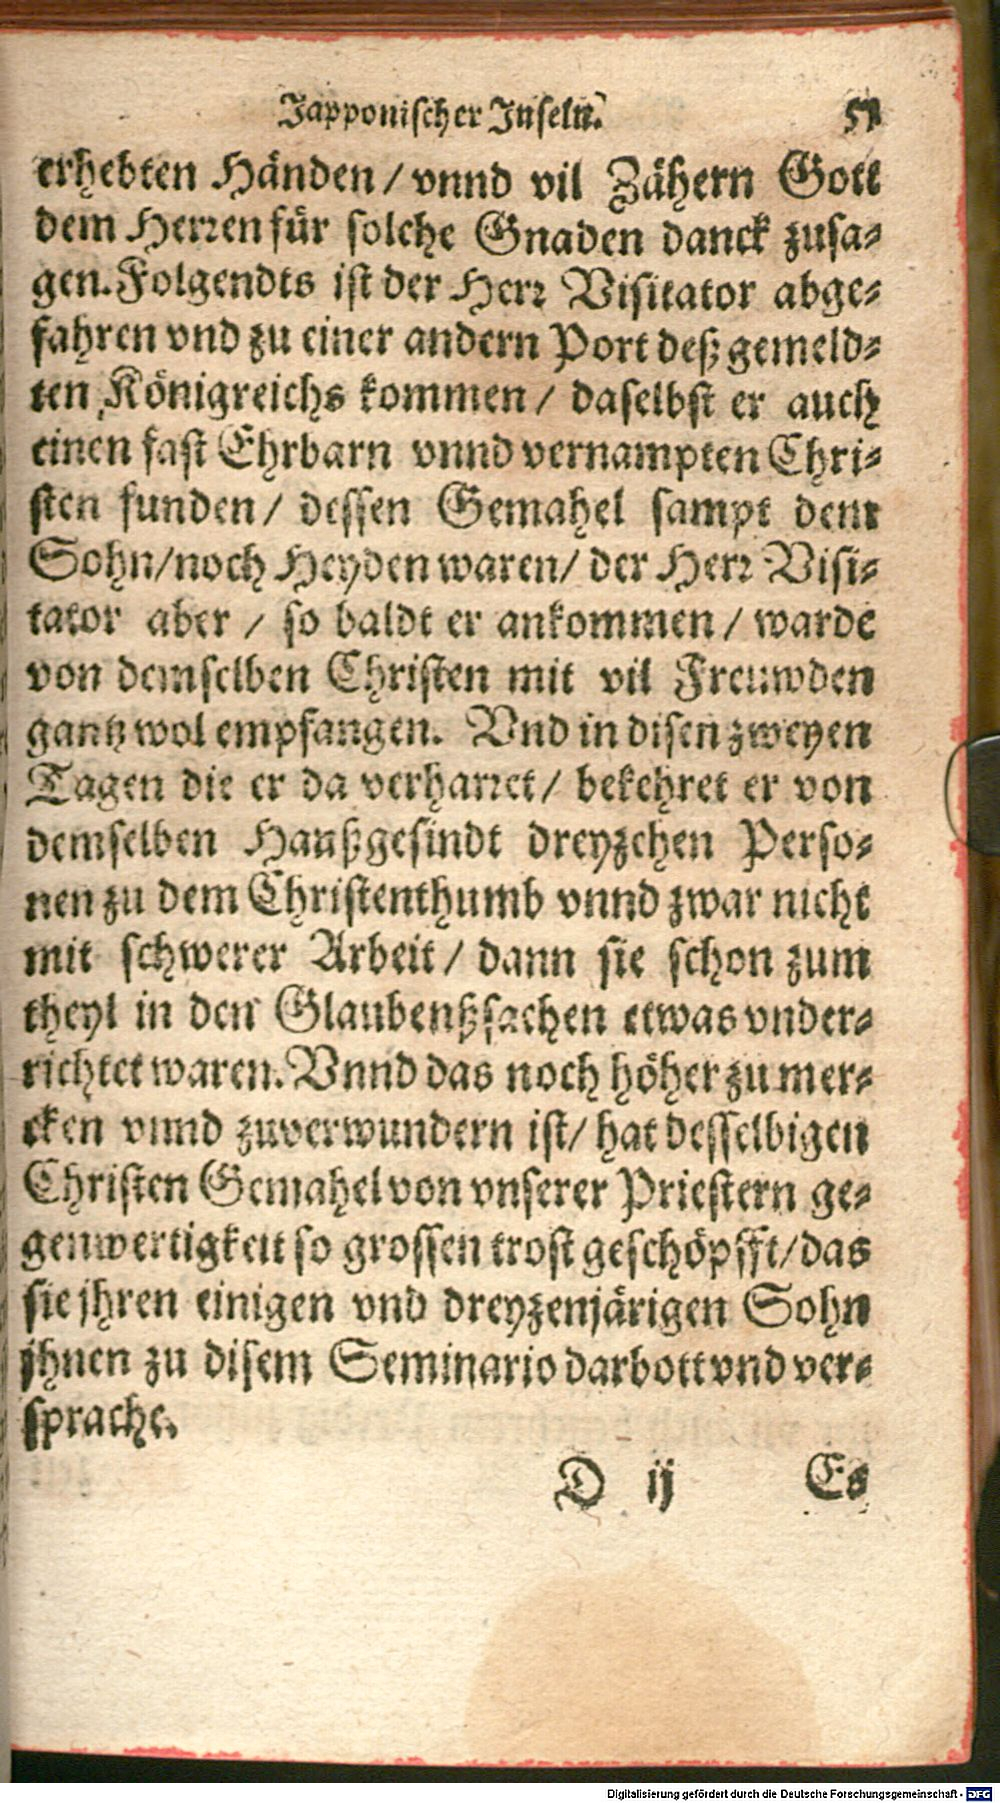 Japponischer Inseln. 51
erhebten Händen / vnnd vil Zähern Gott
dem Herren für solche Gnaden danck zusa⸗
gen. Folgendts ist der Herr Visitator abge⸗
fahren vnd zu einer andern Port deß gemeld⸗
ten Königreichs kommen / daselbst er auch
einen fast Ehrbarn vnnd vernampten Chri⸗
sten funden / dessen Gemahel sampt dem
Sohn / noch Heyden waren / der Herr Visi⸗
tator aber / so baldt er ankommen / warde
von demselben Christen mit vil Freuwden
gantz wol empfangen. Vnd in disen zweyen
Tagen die er da verharret / bekehret er von
demselben Haußgesindt dreyzehen Perso⸗
nen zu dem Christenthumb vnnd zwar nicht
mit schwerer Arbeit / dann sie schon zum
theyl in den Glaubenßsachen etwas vnder⸗
richtet waren. Vnnd das noch höher zu mer⸗
cken vnnd zuverwundern ist / hat desselbigen
Christen Gemahel von vnserer Priestern ge⸗
genwertigkeit so grossen trost geschöpfft / das
sie jhren einigen vnd dreyzenjärigen Sohn
jhnen zu disem Seminario darbott vnd ver⸗
sprache.
D ij Es
Digitalisierung gefördert durch die Deutsche Forschungsgemeinschaft - DFG